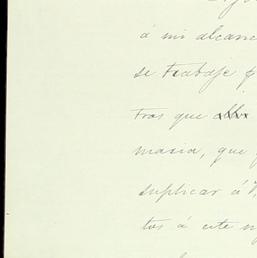 á mi alcanc
se trabaje p
tras que
masia, que
suplicar á V
tos á este